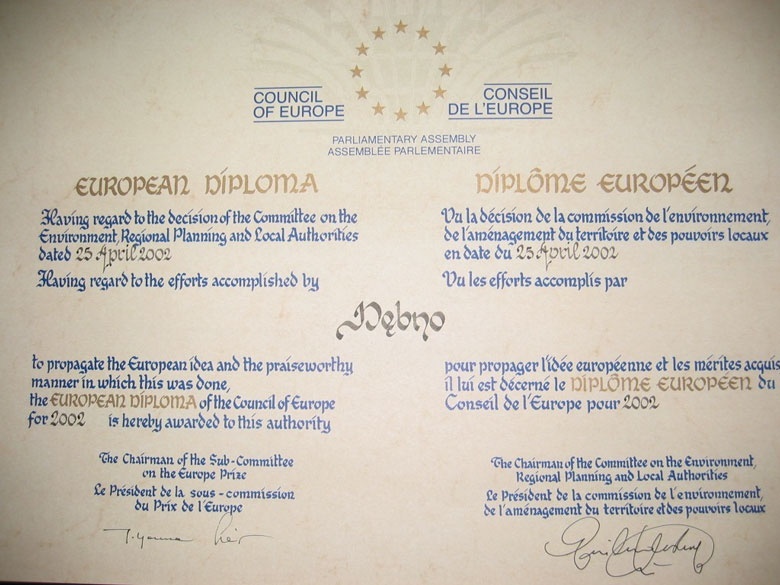 COUNCIL
OF EUROPE
CONSEIL
DE L'EUROPE
PARLIAMENTARY ASSEMBLY
ASSEMBLÉE PARLEMENTAIRE
EUROPEAN DIPLOMA
Having regard to the decision of the Committee on the
Environment, Regional Planning and Local Authorities
dated 25 April 2002
Having regard to the efforts accomplished by
DIPLÔME EUROPÉEN
Vu la décision de la commission de l'environnement,
de l'aménagement du territoire et des pouvoirs locaux
en date du 25 April 2002
Vu les efforts accomplis par
Dębno
to propagate the European idea and the praiseworthy
manner in which this was done,
the EUROPEAN DIPLOMA of the Council of Europe
for 2002 is hereby awarded to this authority
pour propager l'idée européenne et les mérites acquis
il lui est décerné le DIPLÔME EUROPÉEN du
Conseil de l'Europe pour 2002
The Chairman of the Sub-Committee
on the Europe Prize
Le Président de la sous-commission
du Prix de l'Europe
The Chairman of the Committee on the Environment,
Regional Planning and Local Authorities
Le Président de la commission de l'environnement,
de l'aménagement du territoire et des pouvoirs locaux